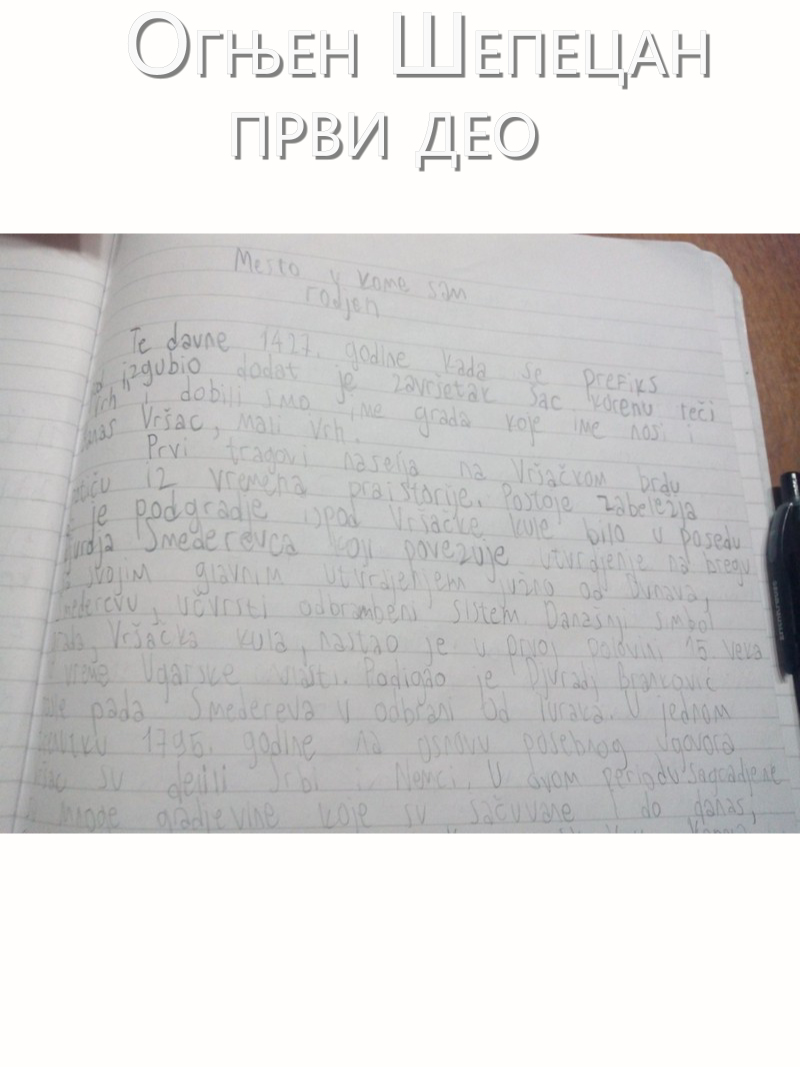 Огњен Шепецан
први део
Mesto u kome sam
rodjen
Te davne 1427. godine kada se prefiks
izgubio dodat je završetak šac korenu reči
vrh i dobili smo ime grada koje ime nosi i
danas Vršac, mali vrh.
Prvi tragovi naselja na Vršačkom brdu
potiču iz vremena praistorije. Postoje zabeležja
je podgradje ispod Vršačke kule bilo u posedu
Djurdja Smederevca koji povezuje utvrdjenje na bregu
svojim glavnim utvrdjenjem južno od Dunava,
Smederevu, učvrsti odbrambeni sistem. Današnji simbol
grada, Vršačka kula, nastao je u prvoj polovini 15 veka
vreme Ugarske vlasti. Podigao je Djuradj Branković
posle pada Smedereva u odbrani od turaka. U jednom
1795. godine na osnovu posebnog ugovora
Vršac su delili Srbi i Nemci. U ovom periodu sagradjene
mnoge gradjevine koje su sačuvane i do danas,